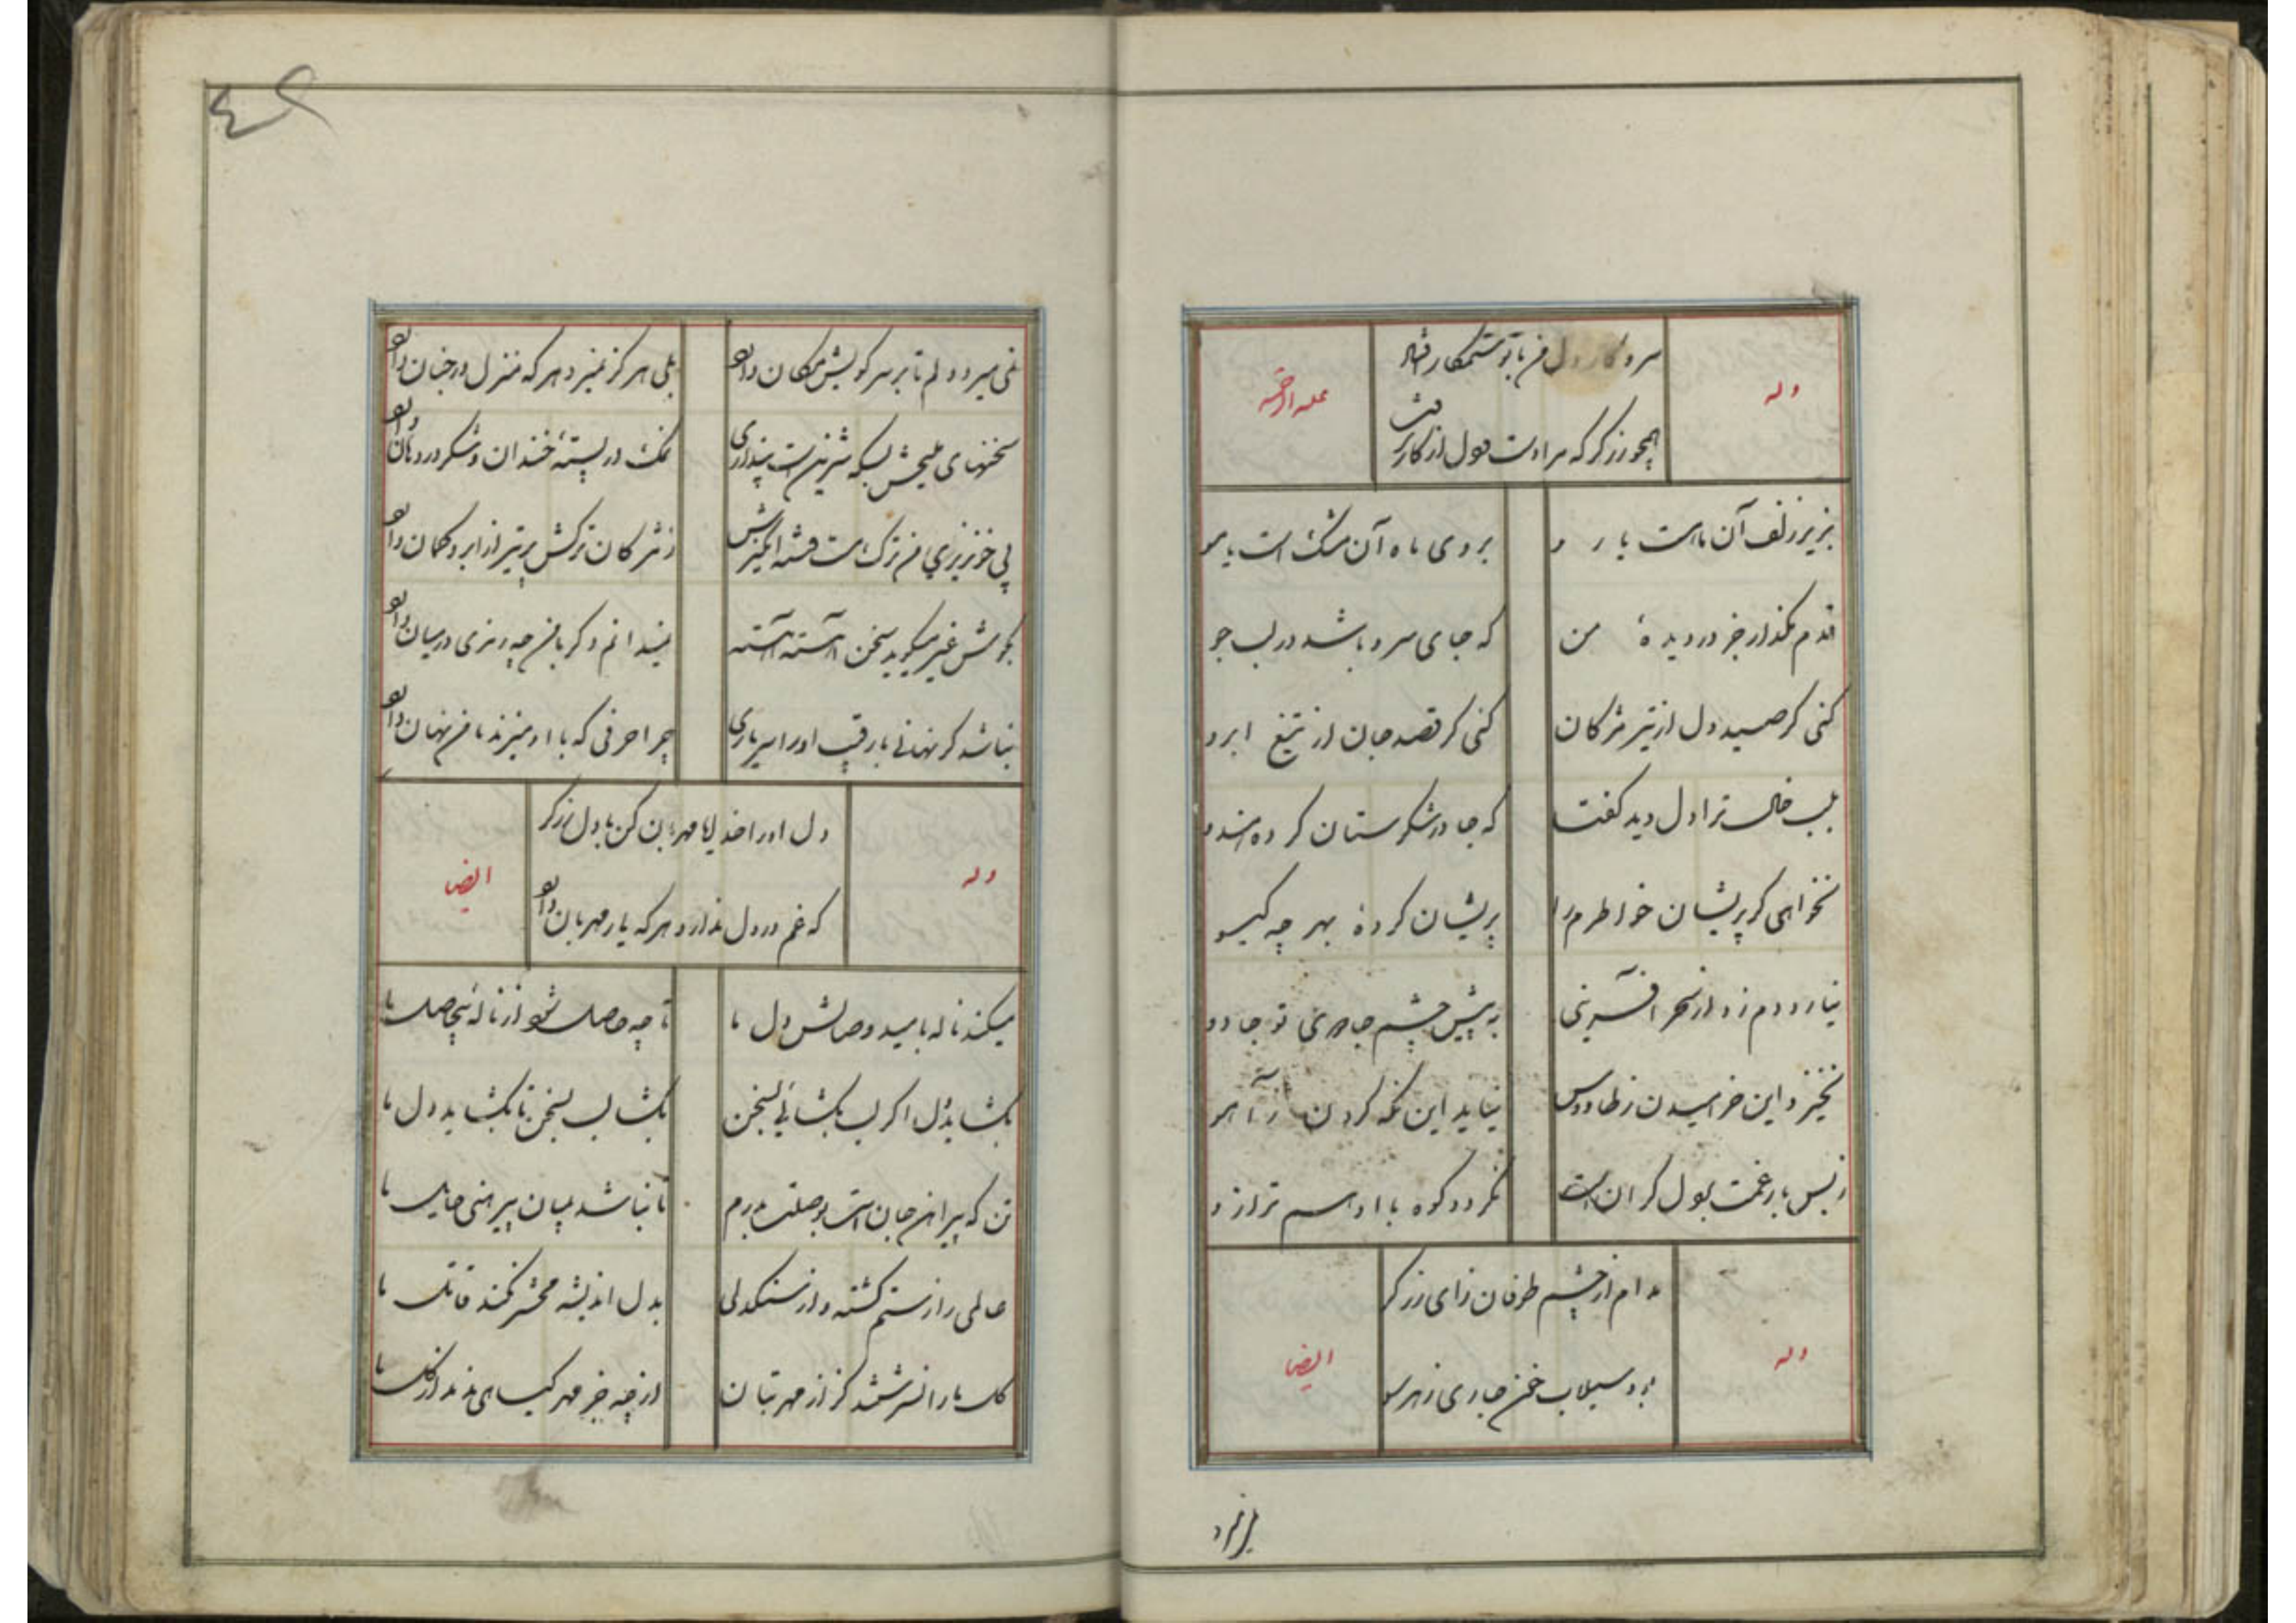 وله
سر و کار دل من با تو ستمکار فتاد
علیه الرحمه
همچو زرگر که مرا دست و دل از کار برفت
بزیر زلف آن ماهست یا رو
بروی ماه آن مشک است یا مو
قدم مگذار جز در دیدهٔ من
که جای سرو باشد در لب جو
کنی گر صید دل از تیر مژگان
کنی گر قصد جان از تیغ ابرو
بلب خال ترا دل دید گفت
که جا در شکرستان کرده هندو
نخواهی گر پریشان خواطرم را
پریشان کردهٔ بهر چه گیسو
نیارد دم زد از سحر آفرینی
به پیش چشم جادوی تو جادو
نخیزد این خرامیدن ز طاووس
نیاید این نگه کردن ز آهو
ز بس بار غمت بر دل گران است
نگردد کوه با او هم ترازو
وله
مدام از چشم طوفان زای زرگر
ایضا
بود سیلاب خون جاری ز هر سو
نمی میرد
نمی میرد دلم تا بر سر کویش مکان دارد
بلی هرگز نمیرد هر که منزل در جنان دارد
سخنهای ملیحش بسکه شیرین ست پنداری
نمک در پستهٔ خندان و شکر در دهان دارد
پی خونریزی من ترک مست فتنه انگیزش
ز مژگان ترکش پر تیر از ابرو کمان دارد
بگوش غیر میگوید سخن آهسته آهسته
نمیدانم دگر با من چه رمزی در میان دارد
نباشد گر نهانی با رقیب او را سر یاری
چرا حرفی که با او میزند با من نهان دارد
وله
دل او را خدایا مهربان کن با دل زرگر
ایضا
که غم در دل ندارد هر که یار مهربان دارد
میکند ناله بامید وصالش دل ما
تا چه حاصل شود از نالهٔ بیحاصل ما
بگشاید دل اگر لب بگشائی بسخن
بگشا لب بسخن تا بگشاید دل ما
تن که پیراهن جان است بوصلت بدرم
تا نباشد بمیان پیرهنی حایل ما
عالمی را ز ستم کشته و از سنگدلی
بدل اندیشه محشر نکند قاتل ما
گل ما را نسرشتند گر از مهر بتان
از چه جز مهر گیاهی ندمد از گل ما